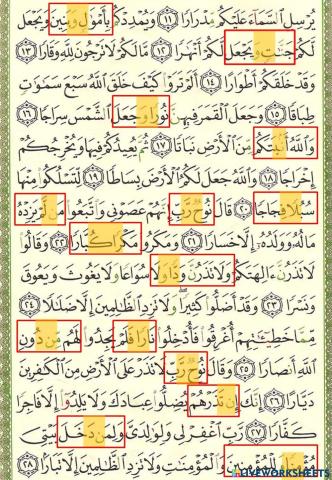 يُرْسِلِ السَّمَاءَ عَلَيْكُم مِّدْرَارًا ﴿١١﴾ وَيُمْدِدْكُم بِأَمْوَالٍ وَبَنِينَ وَيَجْعَل
لَّكُمْ جَنَّاتٍ وَيَجْعَل لَّكُمْ أَنْهَارًا ﴿١٢﴾ مَّا لَكُمْ لَا تَرْجُونَ لِلَّهِ وَقَارًا ﴿١٣﴾
وَقَدْ خَلَقَكُمْ أَطْوَارًا ﴿١٤﴾ أَلَمْ تَرَوْا كَيْفَ خَلَقَ اللَّهُ سَبْعَ سَمَاوَاتٍ
طِبَاقًا ﴿١٥﴾ وَجَعَلَ الْقَمَرَ فِيهِنَّ نُورًا وَجَعَلَ الشَّمْسَ سِرَاجًا ﴿١٦﴾
وَاللَّهُ أَنبَتَكُم مِّنَ الْأَرْضِ نَبَاتًا ﴿١٧﴾ ثُمَّ يُعِيدُكُمْ فِيهَا وَيُخْرِجُكُمْ
إِخْرَاجًا ﴿١٨﴾ وَاللَّهُ جَعَلَ لَكُمُ الْأَرْضَ بِسَاطًا ﴿١٩﴾ لِّتَسْلُكُوا مِنْهَا
سُبُلًا فِجَاجًا ﴿٢٠﴾ قَالَ نُوحٌ رَّبِّ إِنَّهُمْ عَصَوْنِي وَاتَّبَعُوا مَن لَّمْ يَزِدْهُ
مَالُهُ وَوَلَدُهُ إِلَّا خَسَارًا ﴿٢١﴾ وَمَكَرُوا مَكْرًا كُبَّارًا ﴿٢٢﴾ وَقَالُوا
لَا تَذَرُنَّ آلِهَتَكُمْ وَلَا تَذَرُنَّ وَدًّا وَلَا سُوَاعًا وَلَا يَغُوثَ وَيَعُوقَ
وَنَسْرًا ﴿٢٣﴾ وَقَدْ أَضَلُّوا كَثِيرًا وَلَا تَزِدِ الظَّالِمِينَ إِلَّا ضَلَالًا ﴿٢٤﴾
مِّمَّا خَطِيئَاتِهِمْ أُغْرِقُوا فَأُدْخِلُوا نَارًا فَلَمْ يَجِدُوا لَهُم مِّن دُونِ
اللَّهِ أَنصَارًا ﴿٢٥﴾ وَقَالَ نُوحٌ رَّبِّ لَا تَذَرْ عَلَى الْأَرْضِ مِنَ الْكَافِرِينَ
دَيَّارًا ﴿٢٦﴾ إِنَّكَ إِن تَذَرْهُمْ يُضِلُّوا عِبَادَكَ وَلَا يَلِدُوا إِلَّا فَاجِرًا
كَفَّارًا ﴿٢٧﴾ رَّبِّ اغْفِرْ لِي وَلِوَالِدَيَّ وَلِمَن دَخَلَ بَيْتِيَ
مُؤْمِنًا وَلِلْمُؤْمِنِينَ وَالْمُؤْمِنَاتِ وَلَا تَزِدِ الظَّالِمِينَ إِلَّا تَبَارًا ﴿٢٨﴾
LIVEWORKSHEETS